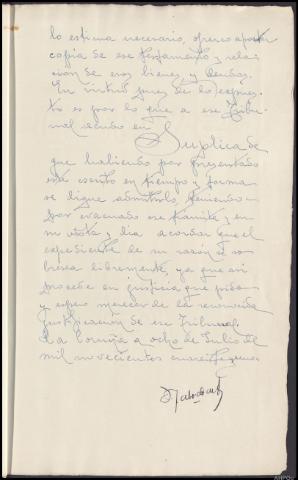 lo estima necesario, ofrezco aportar
copia de ese testamento y rela-
ción de esos bienes y deudas.
En virtud pues de lo expues-
to es por lo que a ese Tribu-
nal acudo en
Suplica de
que habiendo por presentado
este escrito en tiempo y forma
se digne admitirlo, teniendo
por evacuado ese trámite y en
su vista, y dia acordar que el
expediente de su razón se so-
bresea libremente, ya que asi
procede en justicia que pido
y espero merecer de la reconocida
justificación de ese Tribunal.
La Coruña a ocho de Julio de
mil novecientos cuarenta y uno
AHPOu